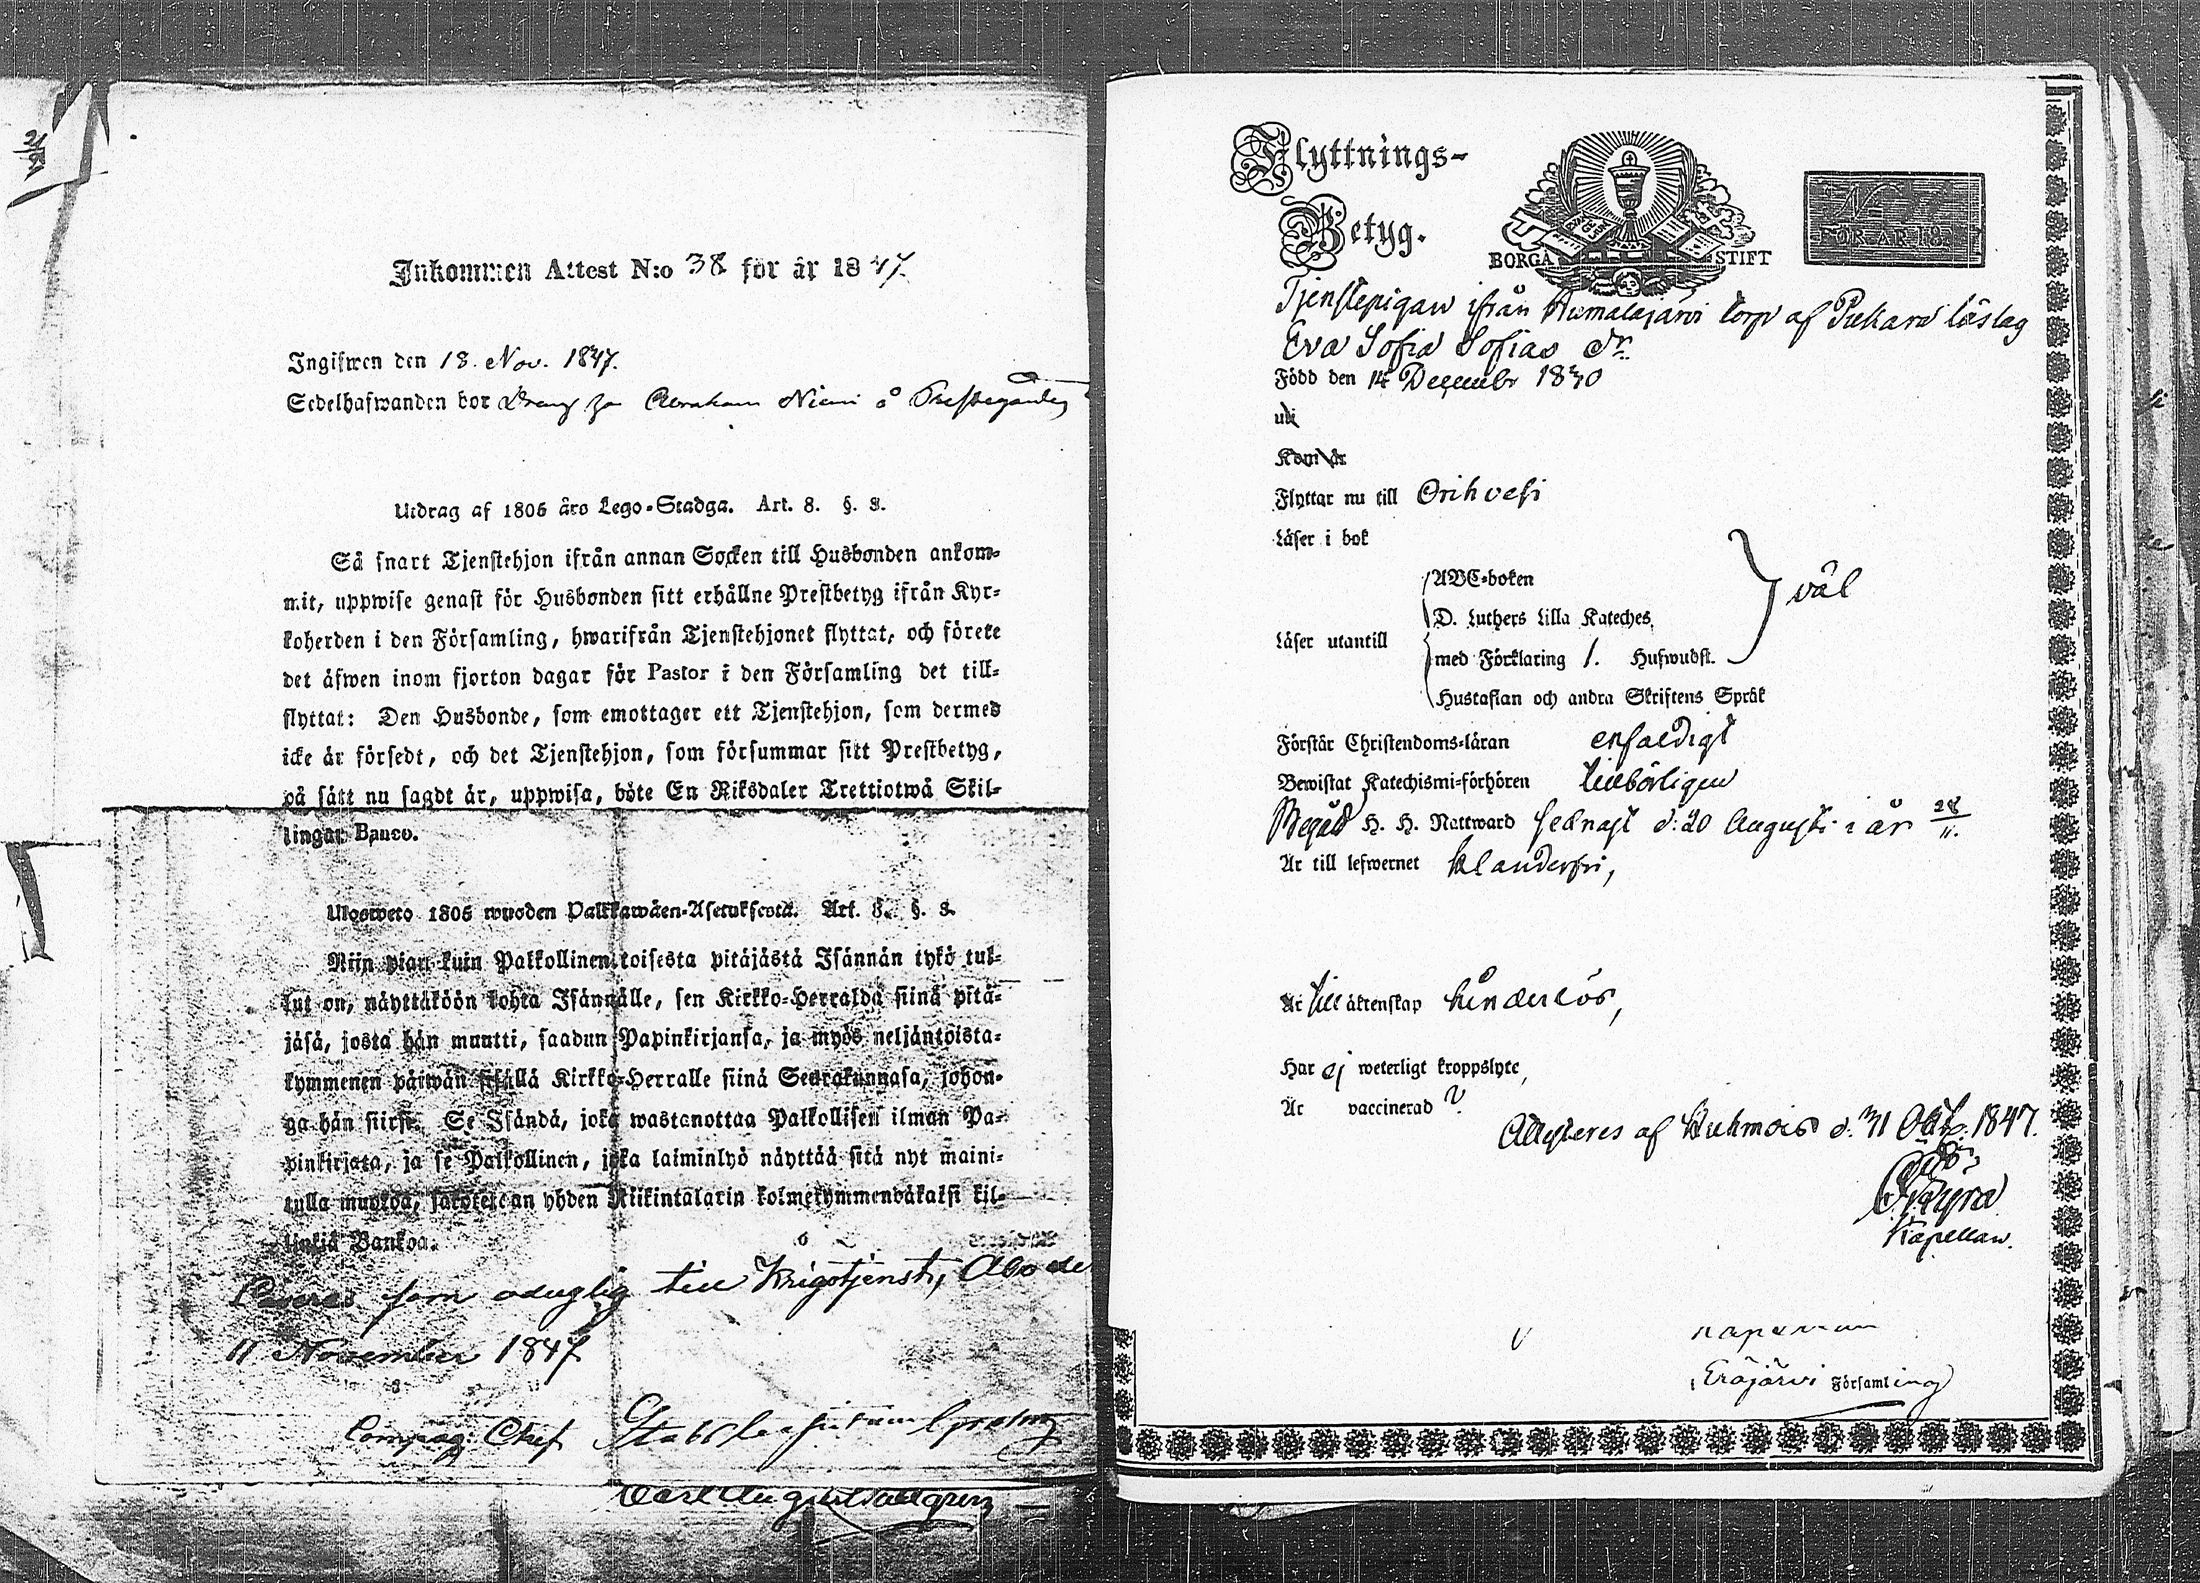 Inkommen Attest N:o 38 för år 1847.
Ingifwen den 18. Nov. 1847.
Sedelhafwanden bor Abraham Niemi å
Utdrag af 1805 års Lego-Stadga. Art. 8. §. 3.
Så snart Tjenstehjon ifrån annan Socken till Husbonden ankom-
mit, uppwise genast för Husbonden sitt erhållne Prestbetyg ifrån Kyr-
koherden i den Församling, hwarifrån Tjenstehjonet flyttat, och förete
det äfwen inom fjorton dagar för Pastor i den Församling det till-
flyttat: Den Husbonde, som emottager ett Tjenstehjon, som dermed
icke är försedt, och det Tjenstehjon, som försummar sitt Prestbetyg,
på sätt nu sagdt är, uppwisa, böte En Riksdaler Trettiotwå Skil-
lingar Banco.
Ulosweto 1805 wuoden Palkkawäen-Asetuksesta. Art. 8. §. 3.
Niin pian kuin Palkollinen toisesta pitäjästä Isännän tykö tul-
lut on, näyttäköön kohta Isännälle, sen Kirkko-Herralda siinä pitä-
jäsä, josta hän muutti, saadun Papinkirjansa, ja myös neljäntoista-
kymmenen päiwän sisällä Kirkko-Herralle siinä Seurakunnasa, johon-
ga hän siirsi. Se Isändä, joka wastanottaa Palkollisen ilman Pa-
pinkirjata, ja se Palkollinen, joka laiminlyö näyttää sitä nyt maini-
tulla muotoa, sakotetaan yhden Riikintalarin kolmekymmendäkaksi kil-
linkiä Bankoa.
som oduglig till Krigstjenst, Åbo de
11 November 1847
Compag. Chef
Carl August
Flyttnings-
Betyg.
BORGÅ STIFT
N
FÖR ÅR 18
Tjenstepigan ifrån Humalajärvi torp af Pukara
Eva Sofia Sofias dr.
Född den 14 Decembr 1830
uti
Kom år
Flyttar nu till Orihvesi
Läser i bok
ABC-boken
D. Luthers Lilla Kateches
väl
Läser utantill
med Förklaring 1. Hufwudst.
Hustaflan och andra Skriftens Språk
Förstår Christendoms-läran enfaldigt
Bewistat Katechismi-förhören tillbörligen
Begått H. H. Nattward sednast d: 20 Augusti i år 28/11.
Är till lefwernet klanderfri,
Är till äktenskap hinderlös,
Har ej weterligt kroppslyte,
Är vaccinerad v.
Attesteres af Kuhmois d. 31 Oktb. 1847.
Kapellan.
Eräjärvi Församling